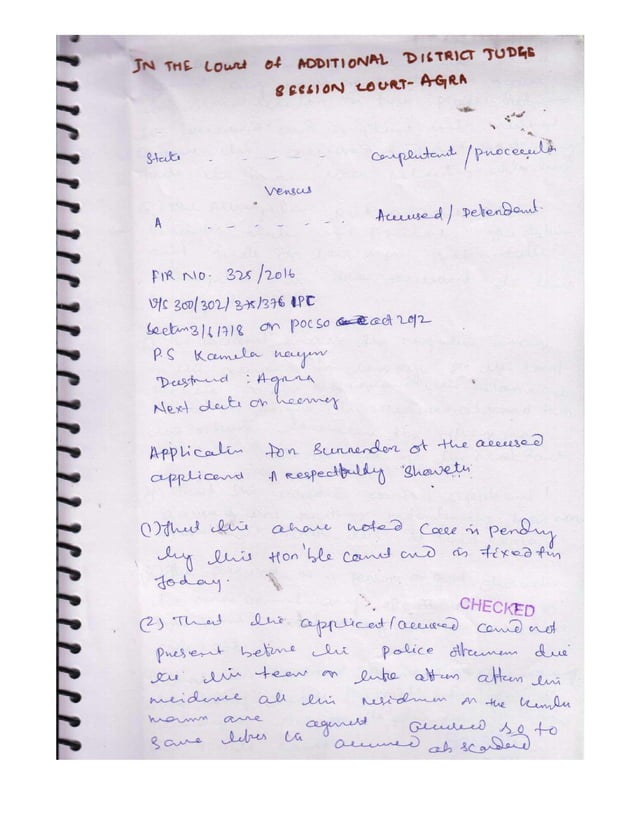 IN THE COURT OF ADDITIONAL DISTRICT JUDGE
SESSION COURT-AGRA
State - - - - - - complutant /
Versus
A - - - - - - Accused / Defendant.
FIR NO- 325/2016
U/S 300/302/375/376 IPC
Section 3/6/7/8 on POCSO act 2012
P.S Kamela nagur
: Agra
Next date on
Application for Surrender of the accused
applicant A respectfully Showeth
(1) That the above noted Case is pending
by this Hon'ble Court and is fixed for
today.
CHECKED
(2) That the applicant/accused could not
present before the police due
the fear on after the
incidence all the on the
are against accused so to
save accused